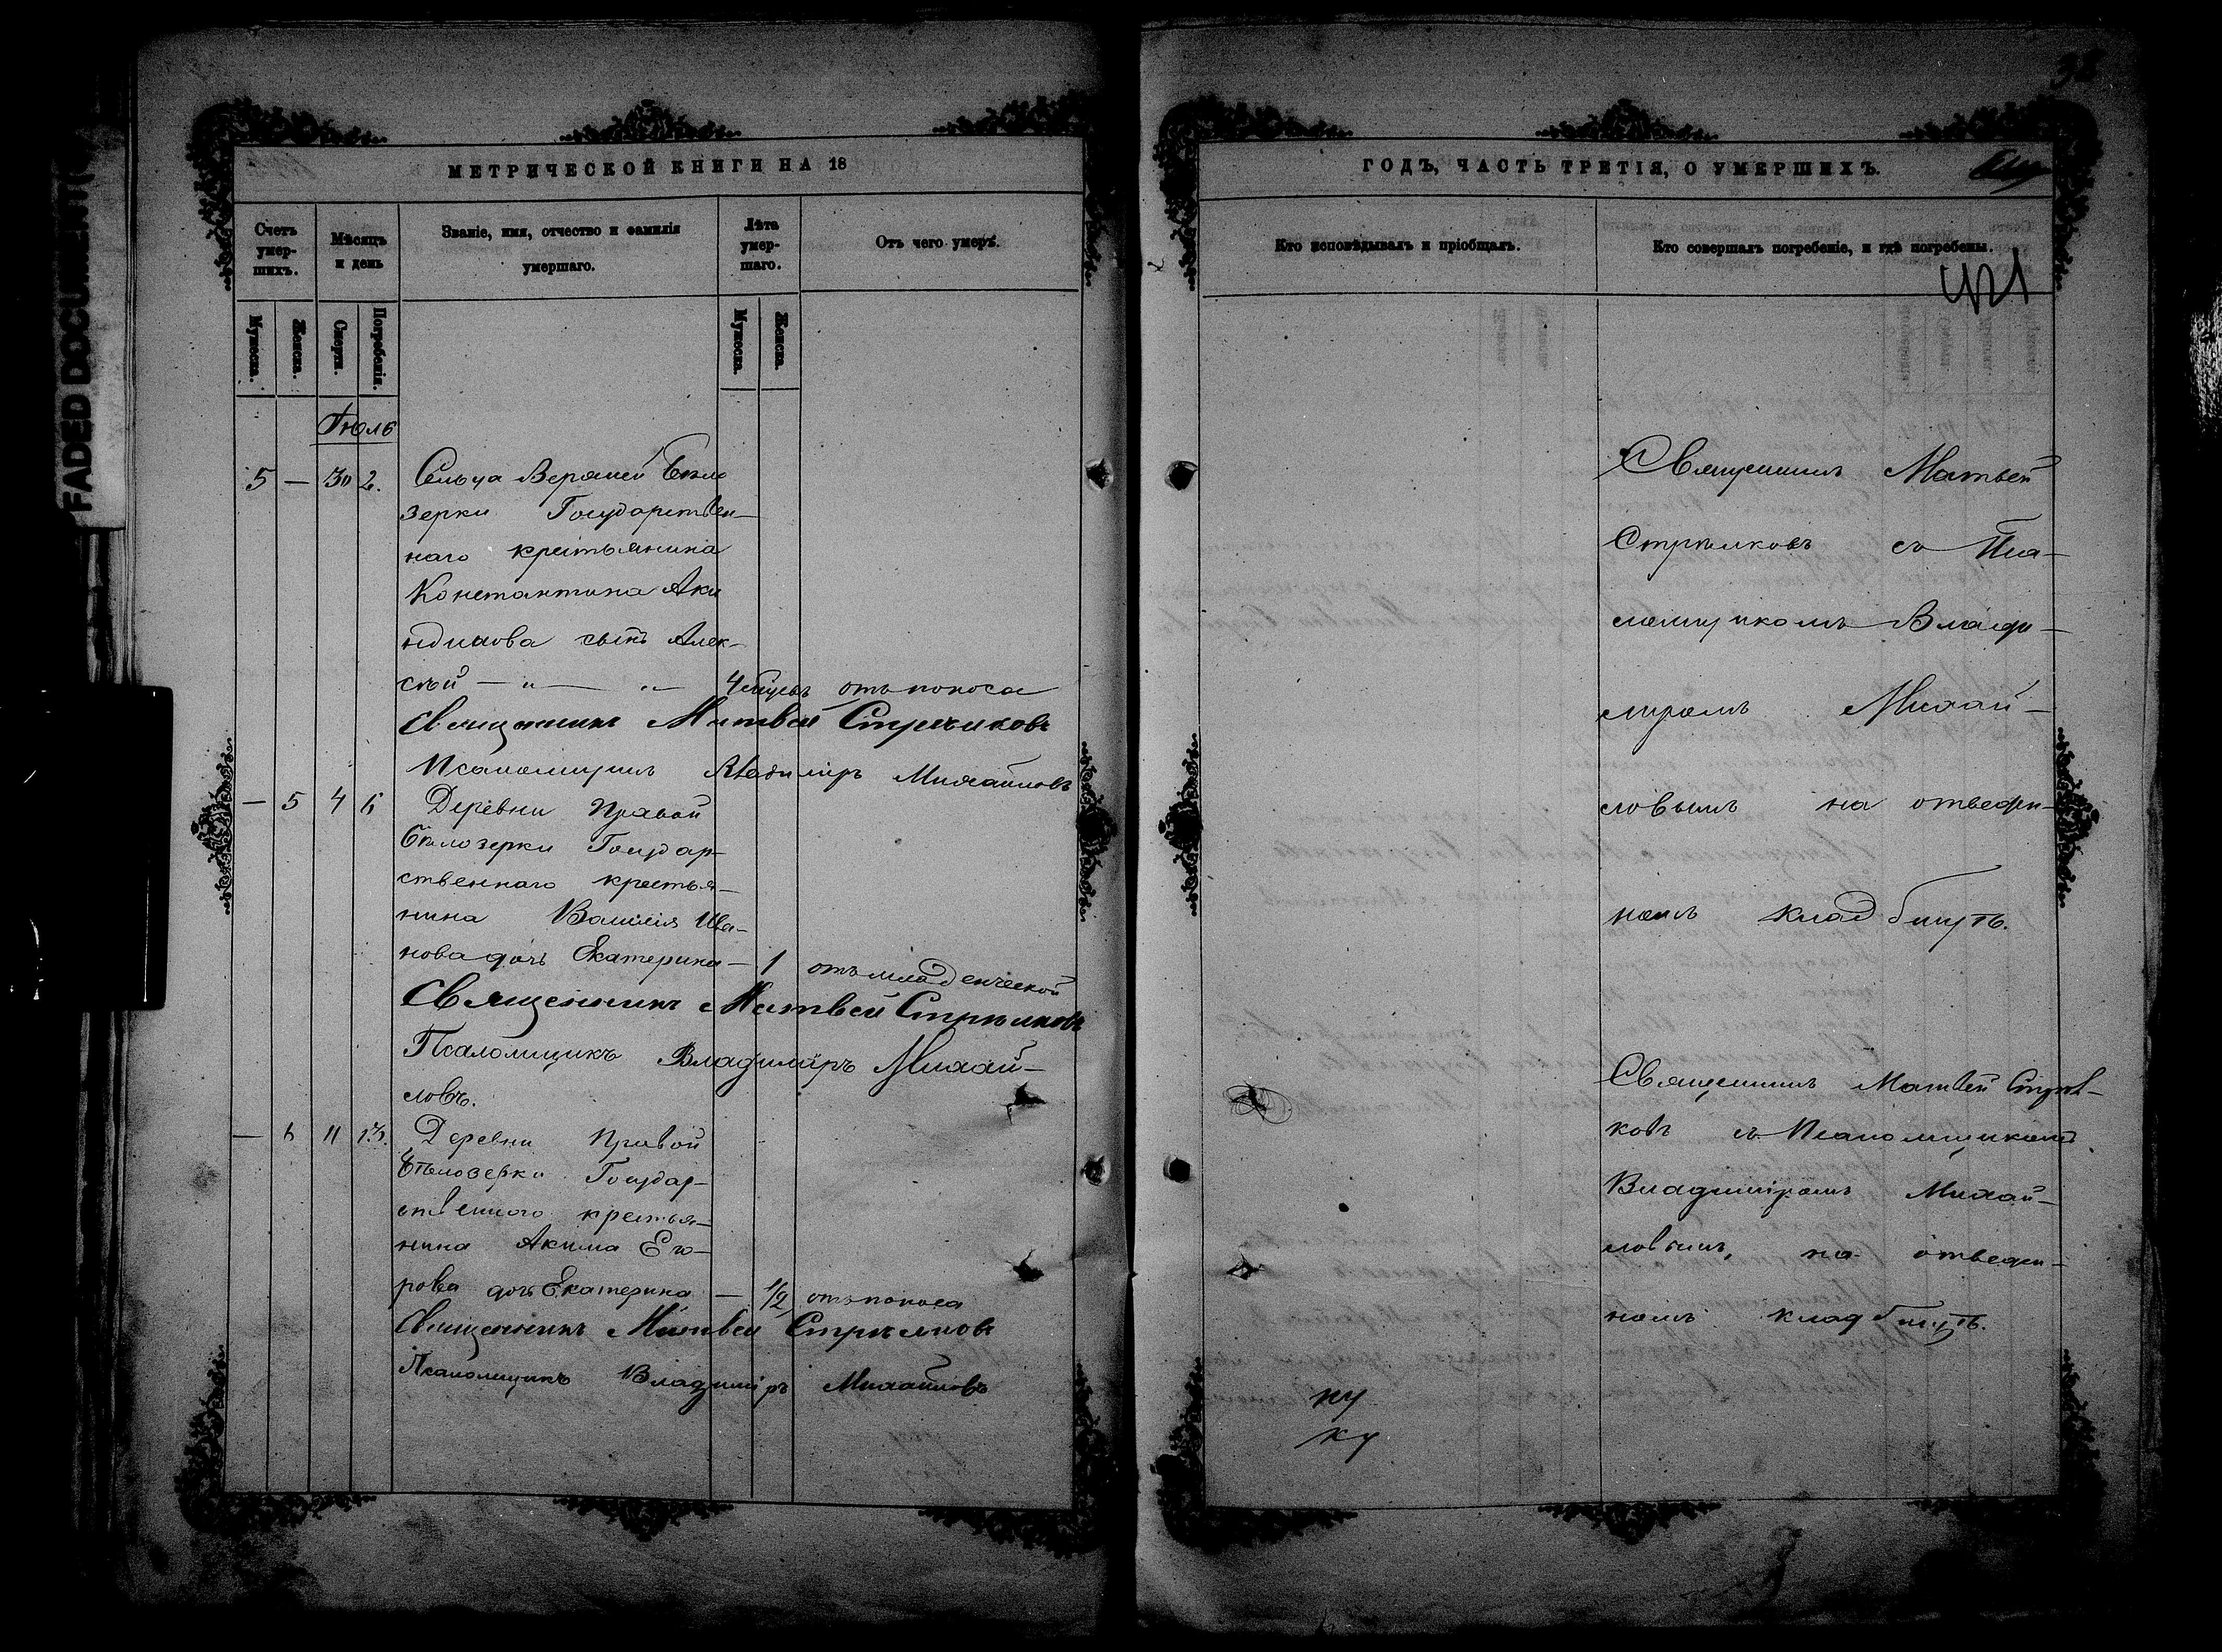 FADED DOCUMENT
МЕТРИЧЕСКОЙ КНИГИ НА 18
Счетъ умер-шихъ.
Мѣсяцъ и день
Званіе, имя, отчество и фамилія умершаго.
Лѣта умер-шаго.
Отъ чего умеръ.
Мужеска.
Женска.
Смерти.
Погребенія.
Мужеска.
Женска.
Іюль
5 — 30 2. Сельца Верхней Бѣло
зерки Государствен-
наго крестьянина
Константина Аки
ндинова сынъ Алек-
сѣй — „ — „ — 4 отъ поноса
Священникъ Матвей Стрѣлковъ
Псаломщикъ Владиміръ Михайловъ
— 5 4 6 Деревни Правой
Бѣлозерки Государ-
ственнаго крестья-
нина Василія Ива-
нова дочь Екатерина — 1 отъ младенческой
Священникъ Матвей Стрѣлковъ
Псаломщикъ Владиміръ Михай-
ловъ.
— 6 11 13. Деревни Правой
Бѣлозерки Государ-
ственнаго крестья-
нина Акима Его-
рова дочь Екатерина — 1/2 отъ поноса
Священникъ Матвей Стрѣлковъ
Псаломщикъ Владиміръ Михайловъ
38
ГОДЪ, ЧАСТЬ ТРЕТІЯ, О УМЕРШИХЪ.
Кто исповѣдывалъ и пріобщалъ.
Кто совершалъ погребеніе, и гдѣ погребены.
421
Священникъ Матвей
Стрѣлковъ съ Пса-
ломщикомъ Влади-
міромъ Михай-
ловымъ на отведен-
номъ кладбищѣ.
Священникъ Матвей Стрѣл-
ковъ съ Псаломщикомъ
Владиміромъ Михай-
ловымъ, на отведен-
номъ кладбищѣ.